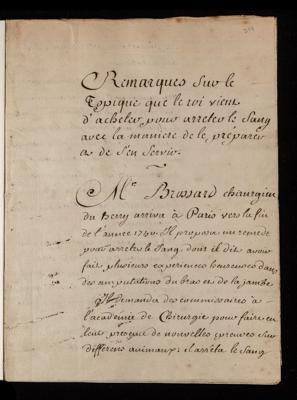 Remarques Sur le
Topique que le roi vient
d'acheter pour arreter le Sang
avec la maniere de le preparer
et de S'en Servir.
Mr Brossard chirurgien
du Berry arriva à Paris vers la fin
de l'année 1750. Il proposa un remede
pour arreter le Sang, dont il dit avoir
fait plusieurs experiences heureuses dans
des amputations du bras et de la jambe
Il demanda des commissaires à
l'academie de Chirurgie pour faire en
leur presence de nouvelles epreuves sur
differens animaux; il arrêta le Sang